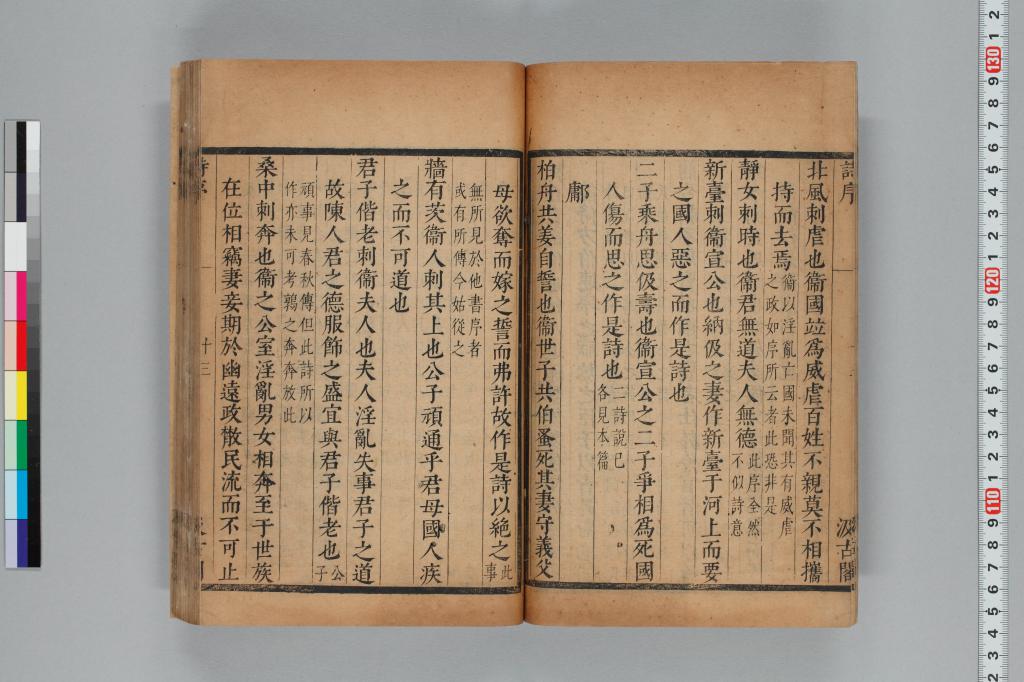 詩序
汲古閣
北風刺虐也衞國竝爲威虐百姓不親莫不相攜
持而去焉衞以淫亂亡國未聞其有威虐
之政如序所云者此恐非是
靜女刺時也衞君無道夫人無德此序全然
不似詩意
新臺刺衞宣公也納伋之妻作新臺于河上而要
之國人惡之而作是詩也
二子乘舟思伋壽也衞宣公之二子爭相爲死國
人傷而思之作是詩也二詩說已
各見本篇
鄘
柏舟共姜自誓也衞世子共伯蚤死其妻守義父
母欲奪而嫁之誓而弗許故作是詩以絶之此
事
無所見於他書序者
或有所傳今始從之
牆有茨衞人刺其上也公子頑通乎君母國人疾
之而不可道也
君子偕老刺衞夫人也夫人淫亂失事君子之道
故陳人君之德服飾之盛宜與君子偕老也公
子
頑事見春秋傳但此詩所以
作亦未可考鶉之奔奔放此
桑中刺奔也衞之公室淫亂男女相奔至于世族
在位相竊妻妾期於幽遠政散民流而不可止
十三